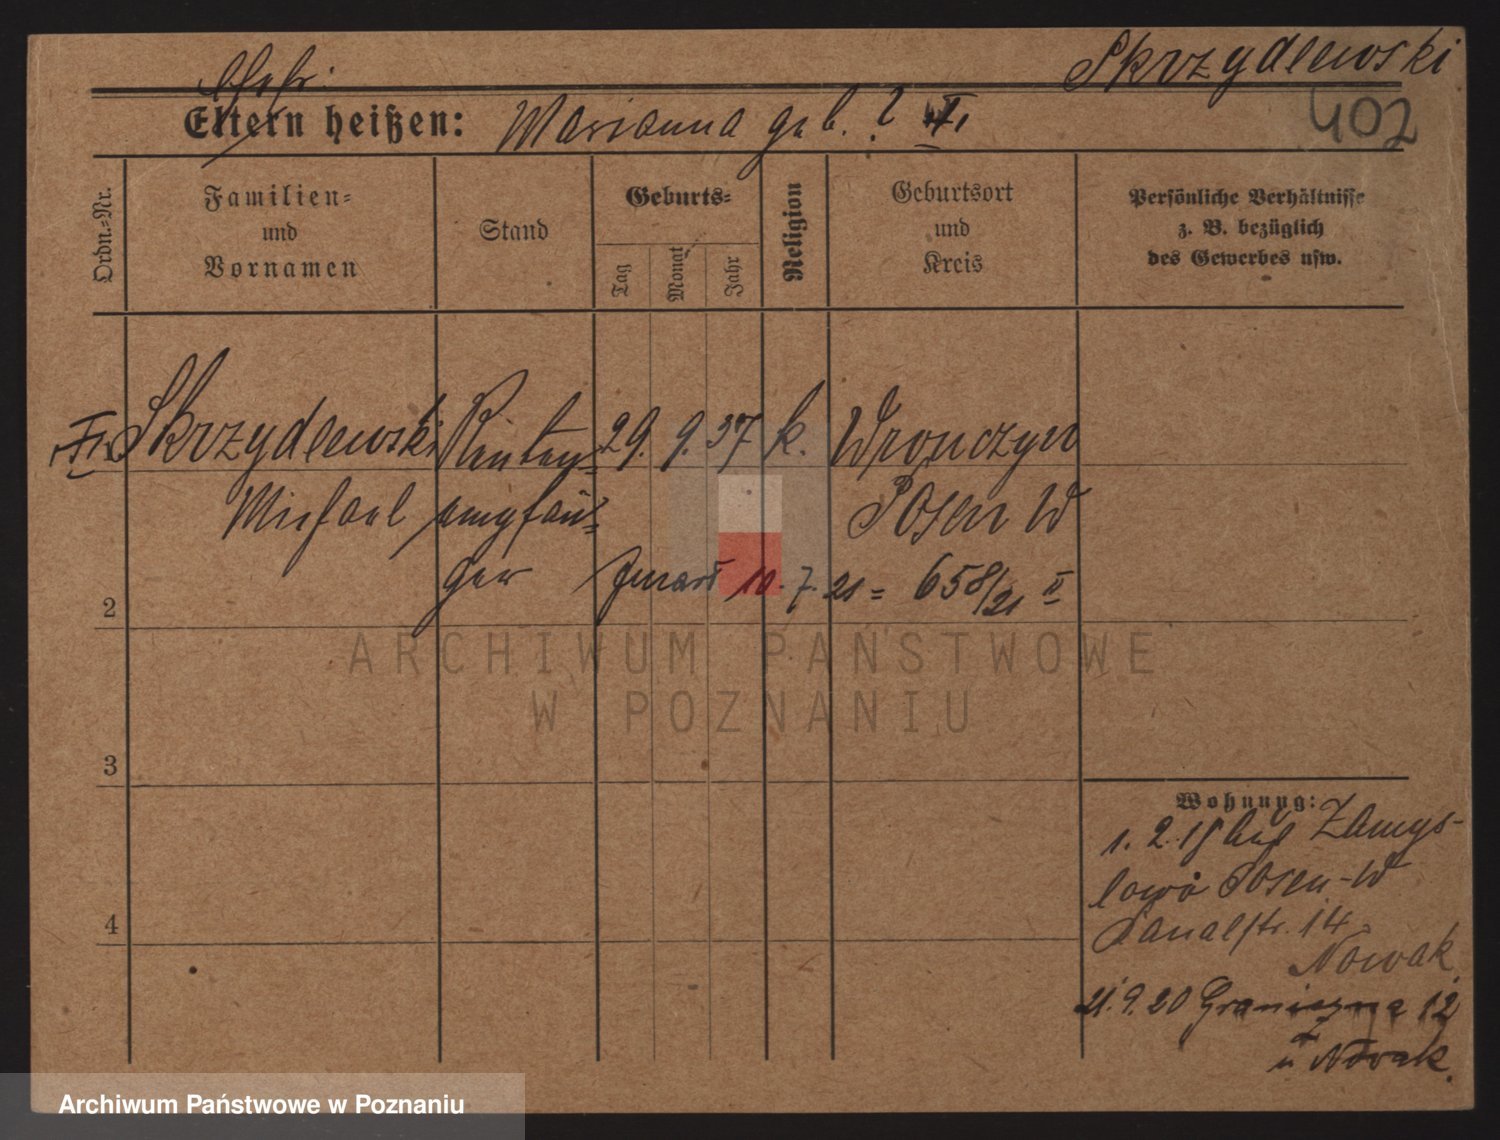 Skrzydlewski
Ehefr.
Eltern heißen: Marianna geb. ? II.
402
Ordn.-Nr.
Familien-
und
Vornamen
Stand
Geburts-
Tag
Monat
Jahr
Religion
Geburtsort
und
Kreis
Persönliche Verhältnisse
z. B. bezüglich
des Gewerbes usw.
Skrzydlewski Renten- 29. 9. 37 k. Wronczyn
Michael empfän- Posen W
ger zmarł 10. 7. 21 = 658/21 II
2
ARCHIWUM PAŃSTWOWE
W POZNANIU
3
Wohnung:
1. 2. 18 aus Zamys-
lowo Posen-W
Kanalstr. 14
Nowak
21. 9. 20 Graniczna 12
u Nowak.
4
Archiwum Państwowe w Poznaniu